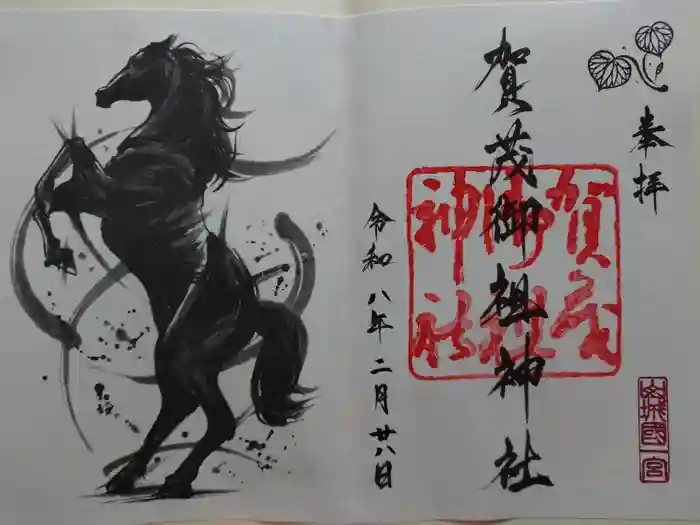 奉拝
賀茂御祖神社
賀茂
御祖
神社
山城國一宮
令和八年二月廿八日